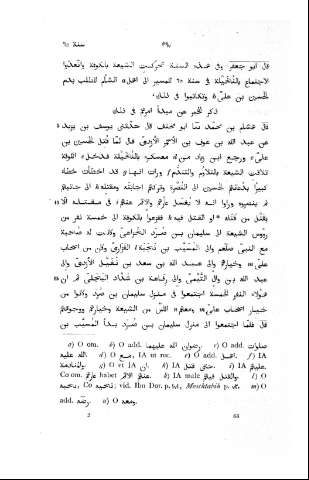 سنة ٦٥
قال ابو جعفر وفى هذه السنة تحركت الشيعة بالكوفة واتعدوا
الاجتماع بالنخيلة فى سنة ٦٥ للمسير الى اهل الشأم للطلب بدم
الحسين بن على وتكاتبوا فى ذلك
ذكر الخبر عن مبدأ امرهم فى ذلك
قال هشام بن محمد نما ابو مخنف قال حدثنى يوسف بن يزيد
عن عبد الله بن عوف بن الاحمر الازدى قال لما قتل الحسين بن
على ورجع ابن زياد من معسكره بالنخيلة فدخل الكوفة
تلاقت الشيعة بالتلاوم والتندم ورات انها قد اخطأت خطأ
كبيرا بدعائهم الحسين الى النصرة وتركهم اجابته ومقتله الى جانبهم
لم ينصروه وراوا انه لا يغسل عارهم والاثم عنهم فى مقتله الا
بقتل من قتله او القتل فيه ففزعوا بالكوفة الى خمسة نفر من
رؤوس الشيعة الى سليمان بن صرد الخزاعى وكانت له صحبة
مع النبى صلعم والى المسيب بن نجبة الفزارى وكان من اصحاب
على وخيارهم والى عبد الله بن سعد بن نفيل الازدى والى
عبد الله بن وال التيمى والى رفاعة بن شداد البجلى ثم ان
هؤلاء النفر الخمسة اجتمعوا فى منزل سليمان بن صرد وكانوا من
خيار اصحاب على ومعهم اناس من الشيعة وخيارهم ووجوههم
قال فلما اجتمعوا الى منزل سليمان بن صرد بدأ المسيب بن
a) O om. b) O add. رضوان الله عليهما. c) O add. صلوات
الله عليه. d) O مع, IA ut rec. e) O add. اهل. f) IA
g) O et IA ان. h) IA
Co om. i) IA male k) IA l) O
Co vid. Ibn Dor. p. Moschtabih p. m) O
add. رضه. n) O ومعه.
2